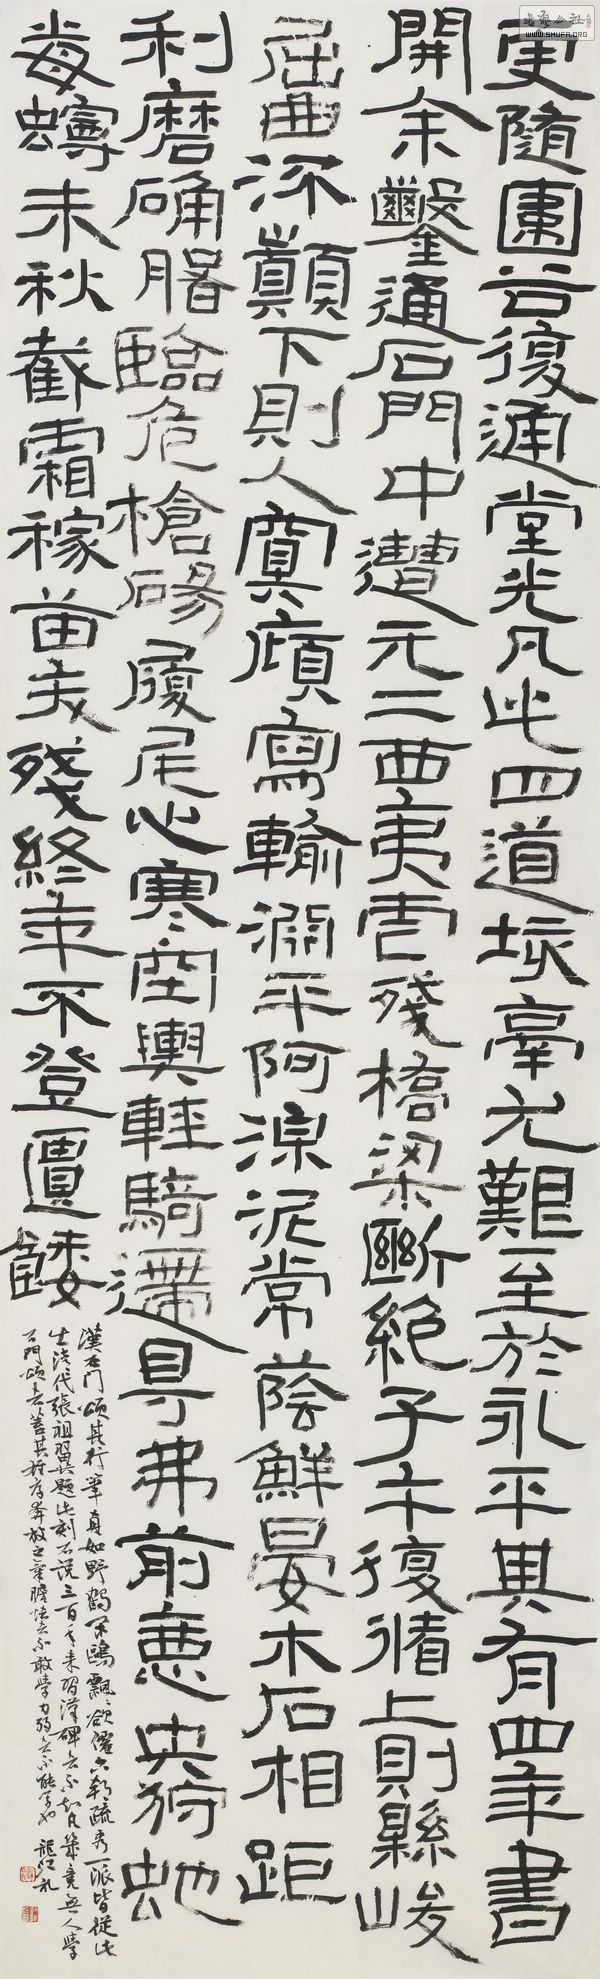 更隨圍谷復通堂光凡此四道垓鬲尤艱至於永平其有四年書
開余鑿通石門中遭元二西夷虐殘橋梁斷絕子午復循上則縣峻
屈曲深顛下則人冥傾寫輸淵平阿淖泥常蔭鮮晏木石相距
利磨确臨危槍碭履尾心寒空輿輕騎遰㝵弗前惡虫㣇虵
蛭未秋截霜稼苗夭殘終年不登匱餧
漢石門頌其行筆真如野鶴閒鷗飄飄欲仙六朝疏秀一派皆從此
生清代張祖翼題此刻石說三百年來習漢碑者不知凡幾竟無人學
石門頌者蓋其雄厚奔放之氣膽怯者不敢學力弱者不能學也
書法公社
WWW.SHUFA.ORG